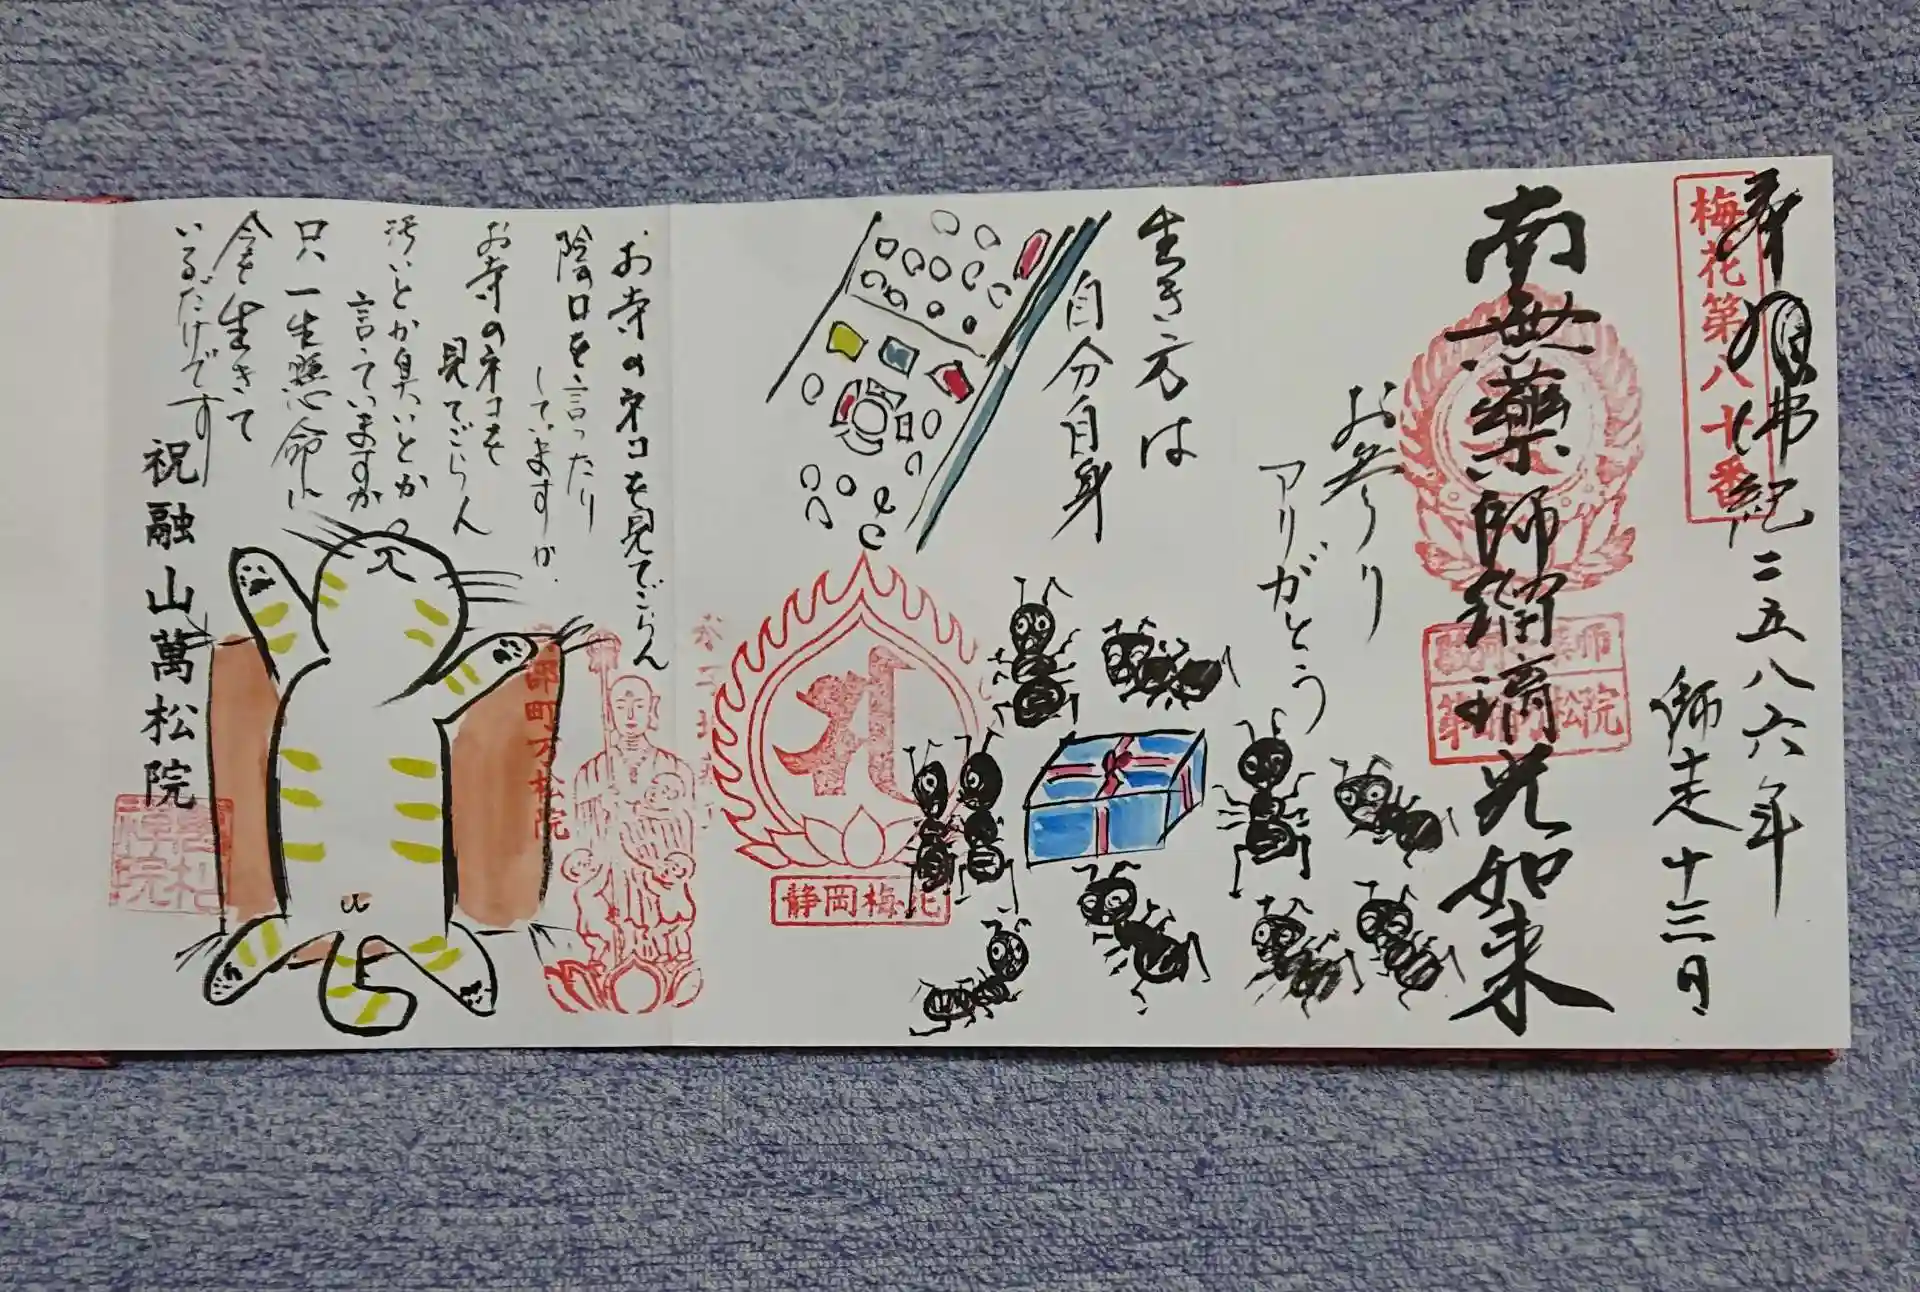 奉拝
佛紀二五八六年
師走十三日
梅花第八十番
南無薬師瑠璃光如来
お参り
アリガとう
生き方は
自分自身
静岡梅花
お寺のネコを見てごらん
陰口を言ったり
していますか
お寺のネコを
見てごらん
汚いとか臭いとか
言っていますか
只一生懸命に
今を生きて
いるだけです
祝融山萬松院
萬松禅院